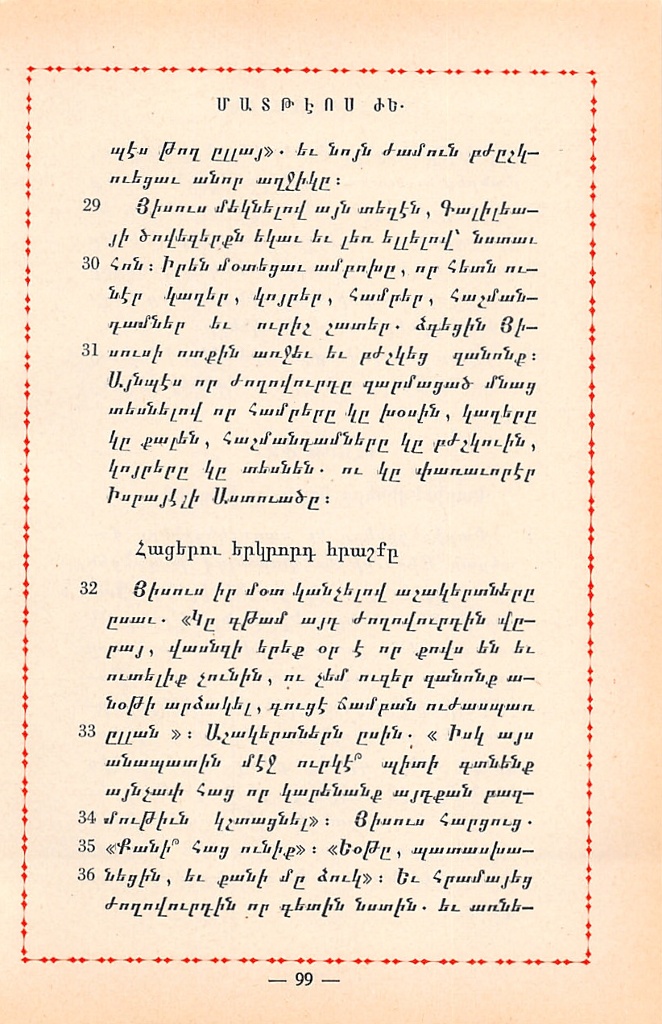 ՄԱՏԹԷՈՍ ԺԵ․
պէս թող ըլլայ»․ եւ նոյն ժամուն բժըշկ—
ուեցաւ անոր աղջիկը։
29 Յիսուս մեկնելով այն տեղէն, Գալիլեա—
յի ծովեզերքն եկաւ եւ լեռ ելլելով՝ նստաւ
30 հոն։ Իրեն մօտեցաւ ամբոխը, որ հետն ու—
նէր կաղեր, կոյրեր, համրեր, հաշման—
դամներ եւ ուրիշ շատեր․ ձգեցին Յի—
31 սուսի ոտքին առջեւ եւ բժշկեց զանոնք։
Այնպէս որ ժողովուրդը զարմացած մնաց
տեսնելով որ համրերը կը խօսին, կաղերը
կը քալեն, հաշմանդամները կը բժշկուին,
կոյրերը կը տեսնեն․ ու կը փառաւորէր
Իսրայէլի Աստուածը։
Հացերու երկրորդ հրաշքը
32 Յիսուս իր մօտ կանչելով աշակերտները
ըսաւ․ «Կը գթամ այդ ժողովուրդին վը—
րայ, վասնզի երեք օր է որ քովս են եւ
ուտելիք չունին, ու չեմ ուզեր զանոնք ա—
նօթի արձակել, գուցէ ճամբան ուժասպառ
33 ըլլան »։ Աշակերտներն ըսին․ « Իսկ այս
անապատին մէջ ուրկէ՞ պիտի գտնենք
այնչափ հաց որ կարենանք այդքան բազ—
34 մութիւն կշտացնել»։ Յիսուս հարցուց․
35 «Քանի՞ հաց ունիք»։ «Եօթը, պատասխա—
36 նեցին, եւ քանի մը ձուկ»։ Եւ հրամայեց
ժողովուրդին որ գետին նստին․ եւ առնե—
— 99 —